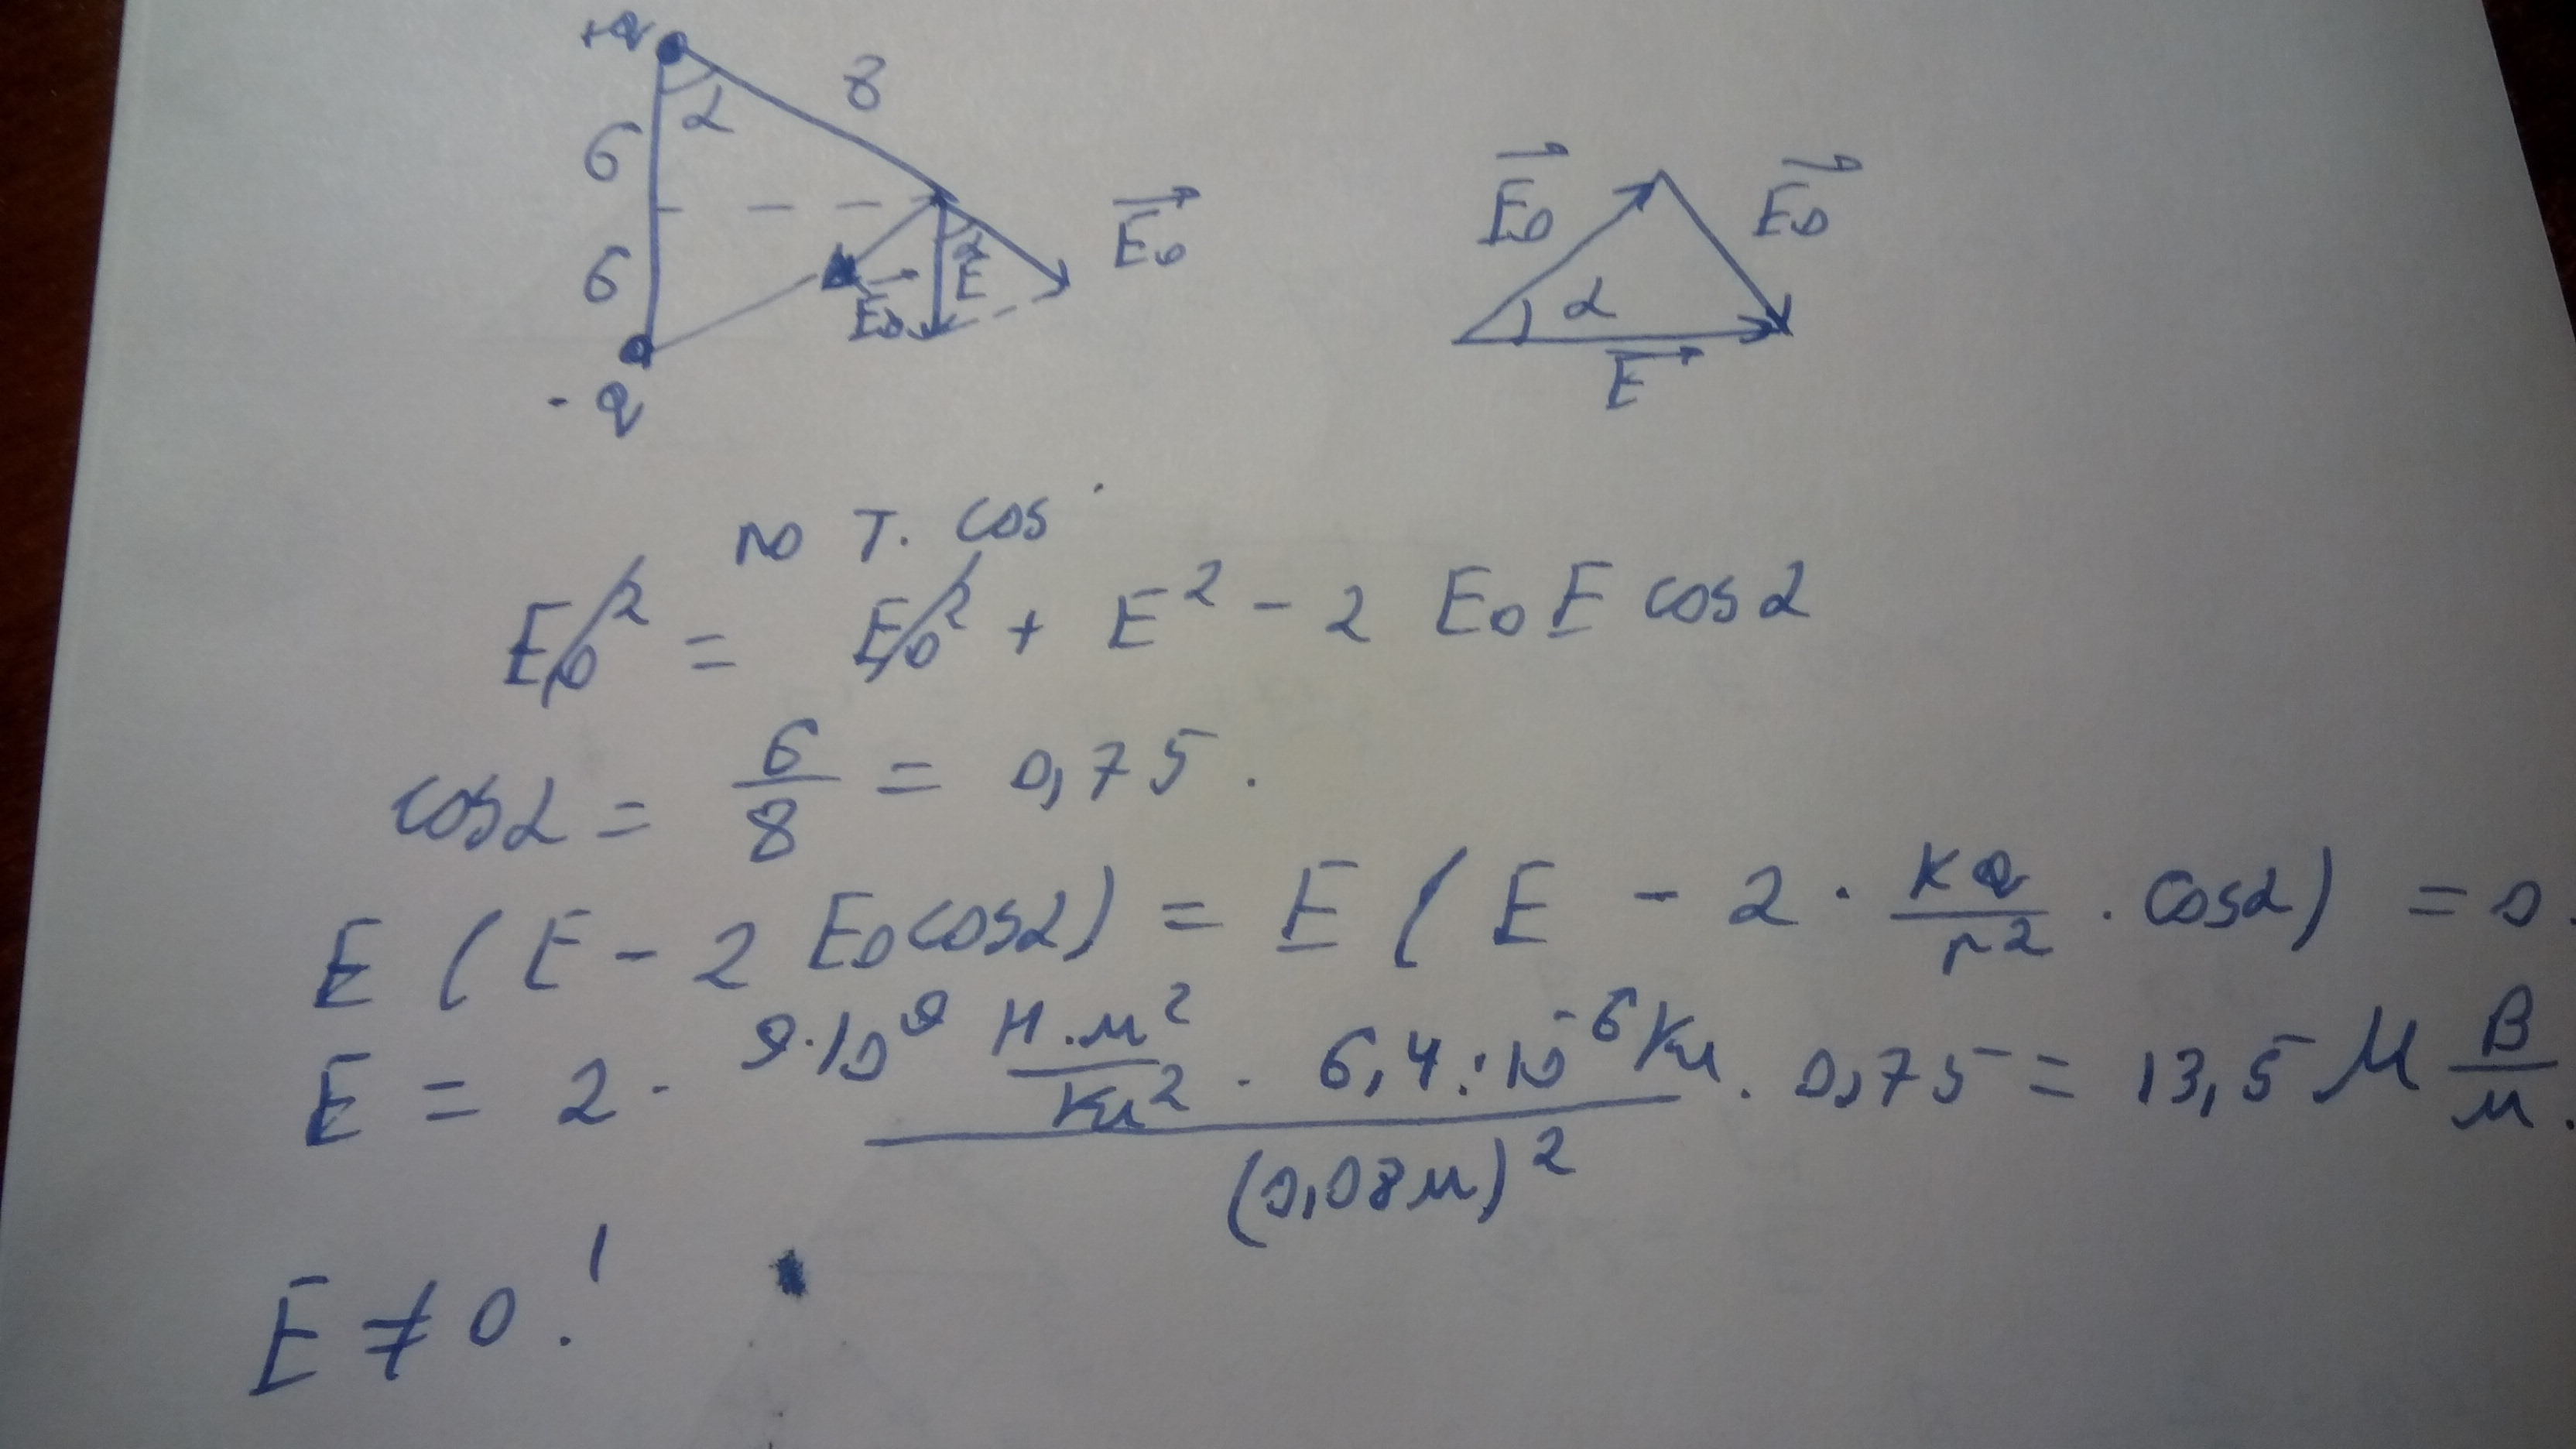 +q
8
α
6
6
α
E₀
E
E₀
-q
E₀
E₀
α
E
по т. cos
E₀² = E₀² + E² - 2 E₀ E cosα
cosα = 6/8 = 0,75.
E (E - 2 E₀ cosα) = E (E - 2 · kq/r² · cosα) = 0.
E = 2 · 9·10⁹ Н·м²/Кл² · 6,4·10⁻⁶ Кл / (0,08м)² · 0,75 = 13,5 М В/м.
E ≠ 0!